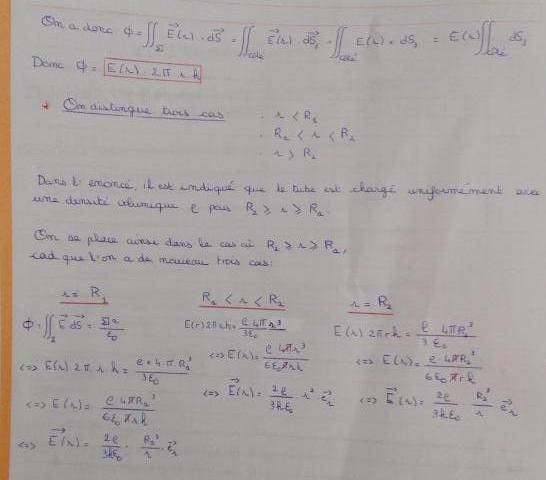 On a donc Φ = ∬_Σ E⃗(r) · dS⃗ = ∬_côté E⃗(r) · dS⃗₁ = ∬_côté E(r) × dS₁ = E(r) ∬_côté dS₁
Donc Φ = E(r) · 2π r h
* On distingue trois cas:
· r < R₁
· R₁ < r < R₂
· r > R₂
Dans l'énoncé, il est indiqué que le tube est chargé uniformément avec
une densité volumique ρ pour R₂ ⩾ r ⩾ R₁.
On se place ainsi dans le cas où R₂ ⩾ r ⩾ R₁,
càd que l'on a de nouveau trois cas:
r = R₁
Φ = ∬_Σ E⃗ dS⃗ = Σq/ε₀
<=> E(r) 2π r h = ρ × 4 · π · R₁³/3ε₀
<=> E(r) = ρ 4πR₁³/6ε₀ π r h
<=> E⃗(r) = 2ρ/3hε₀ · R₁³/r · e⃗ᵣ
R₁ < r < R₂
E(r) 2πrh = ρ 4πr³/3ε₀
<=> E(r) = ρ 4πr³/6ε₀πrh
<=> E⃗(r) = 2ρ/3hε₀ · r² · e⃗ᵣ
r = R₂
E(r) 2πrh = ρ · 4πR₂³/3 · ε₀
<=> E(r) = ρ · 4πR₂³/6ε₀πrh
<=> E⃗(r) = 2ρ/3hε₀ · R₂³/r · e⃗ᵣ